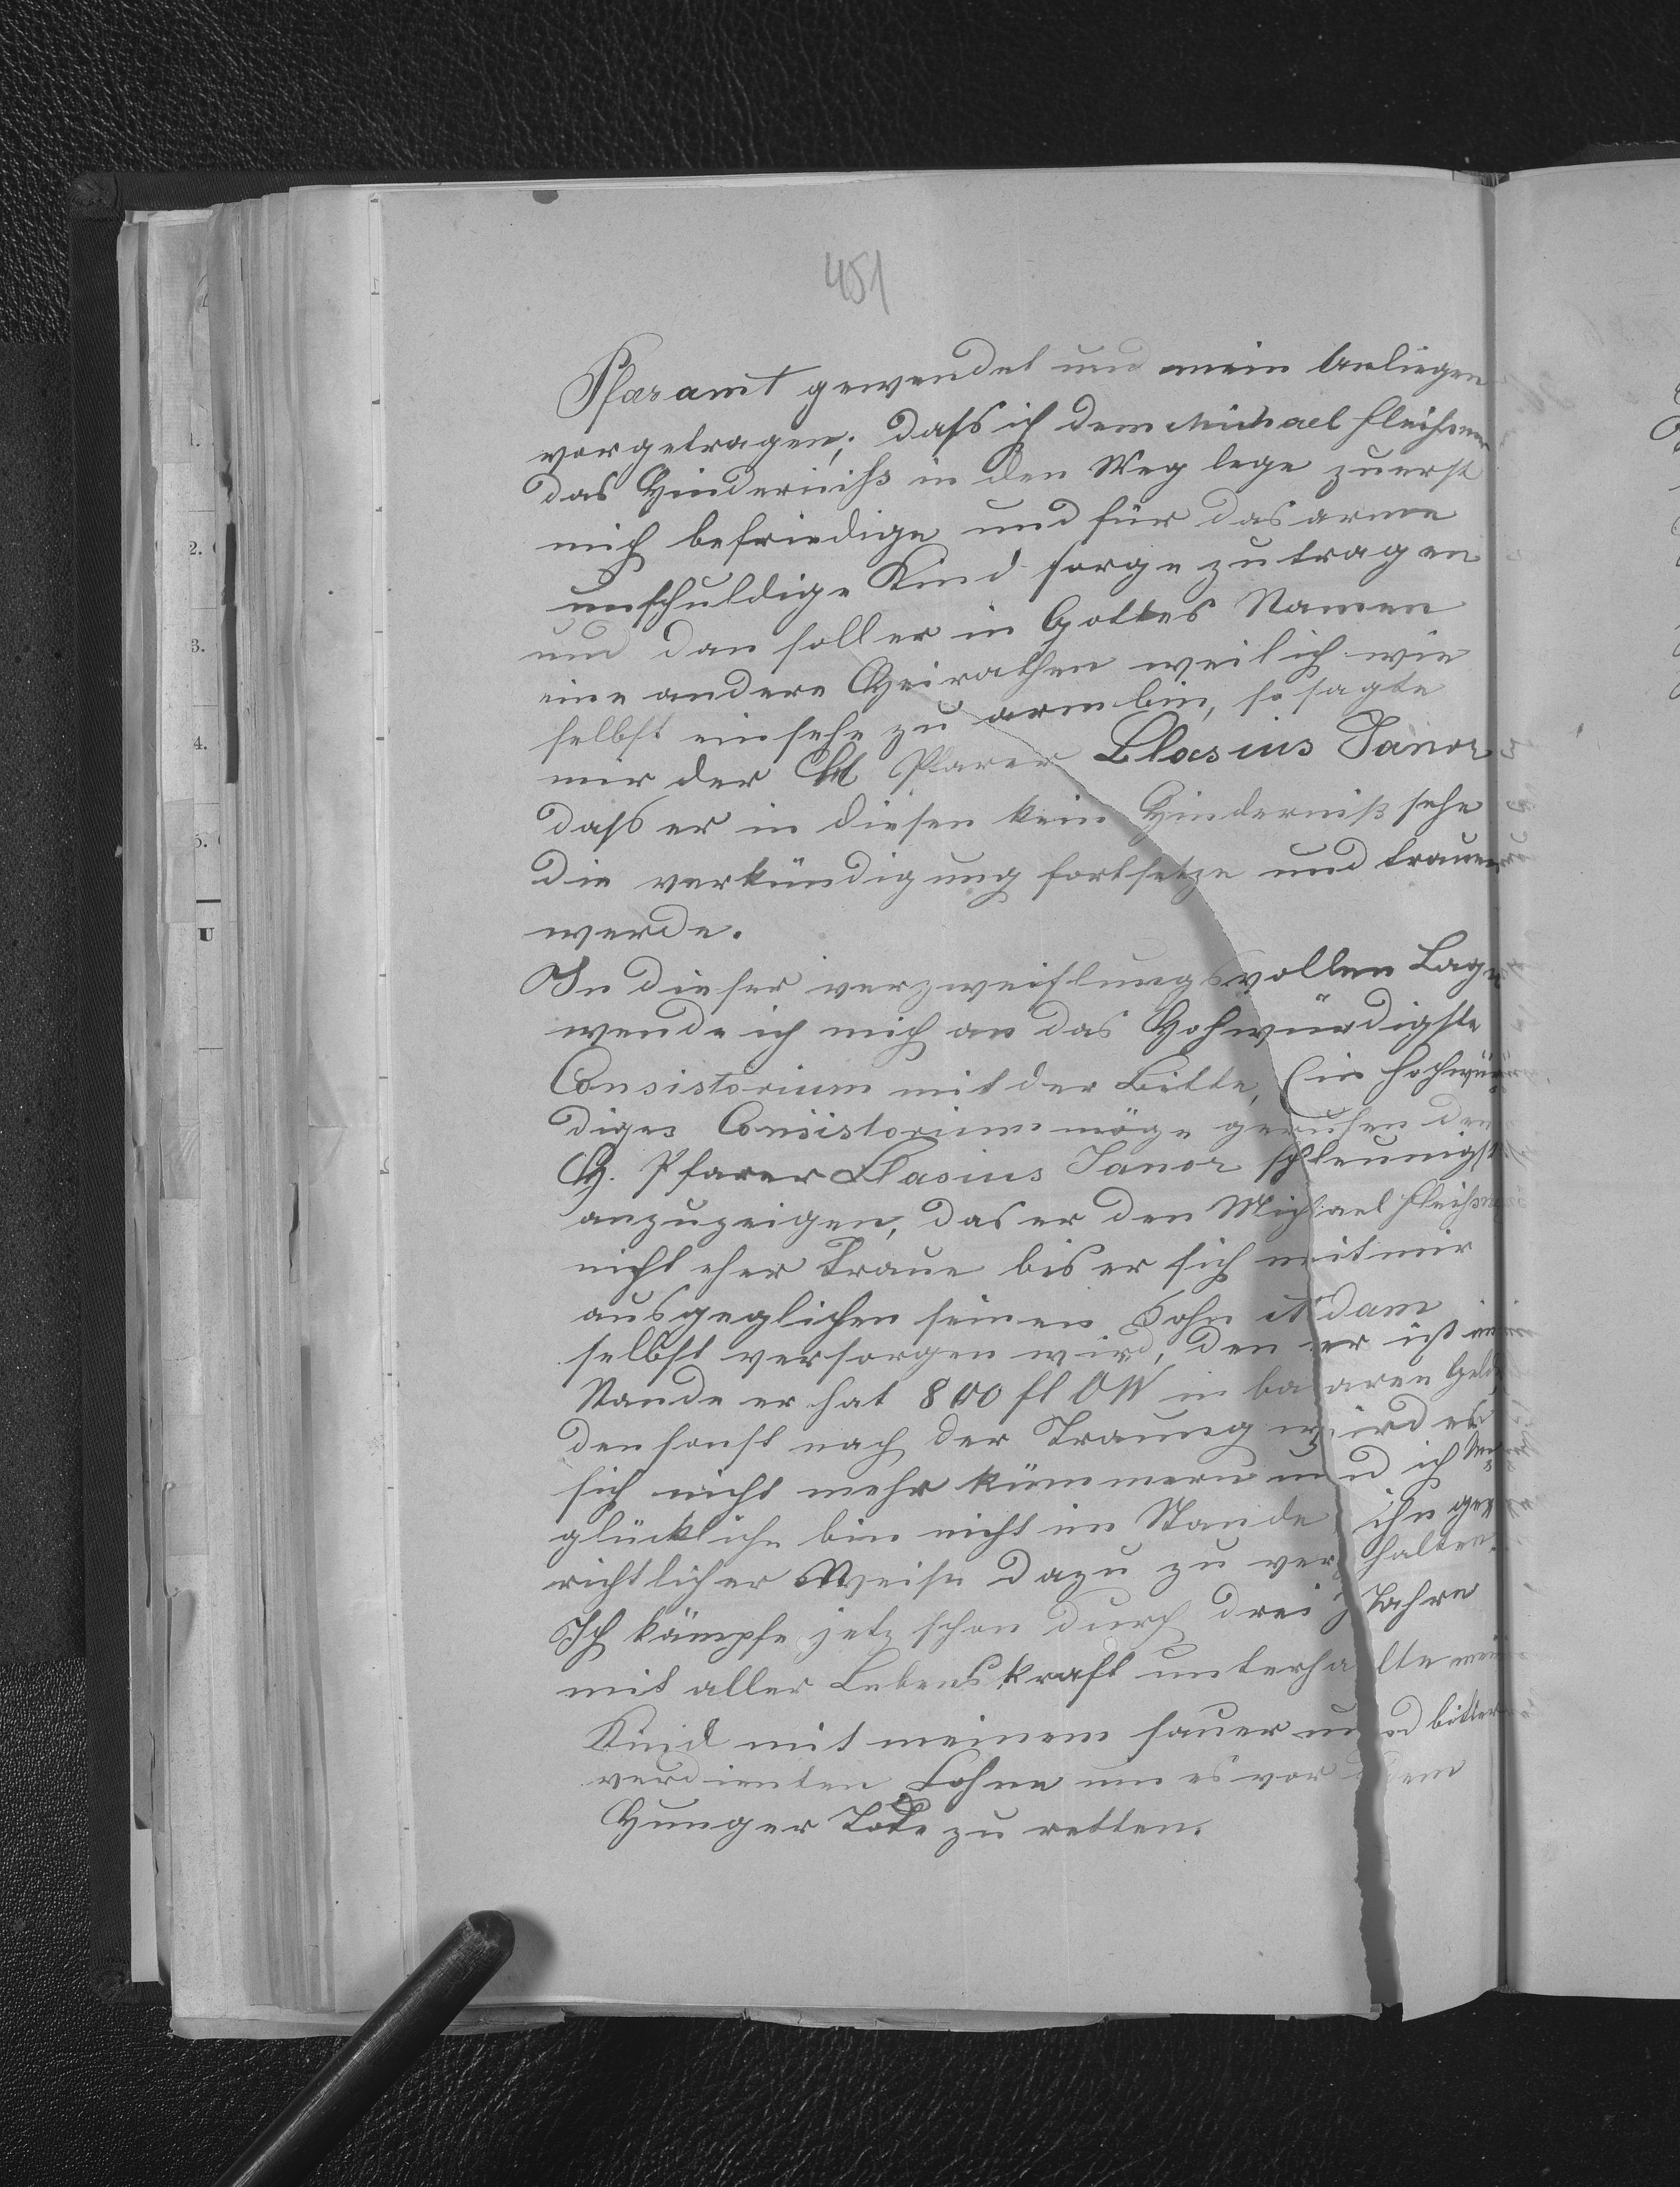 451
Pfaramt gewendet und mein Anliegen
vorgetragen; dass ich dem Michael Fleissner
das Hinderniss in den Weg lege zuerst
mich befriedige und für das arme
unschuldige Kind sorge zu tragen
und dan soll er in Gottes Namen
eine andere Heirathen weil ich wie
selbst einsehe zu arm bin, so sagte
mir der H Pfarer Blasius Janor
dass er in diesen kein Hinderniß sehe
die verkündigung fortsetze und trauen
werde.
In dieser verzweiflungsvollen Lage
wende ich mich an das Hohwürdigste
Consistorium mit der Bitte, Ein hochwür
diges Consistorium möge geruhen den
H. Pfarer Blasius Janor schleunigst
anzuzeigen, das er den Michael Fleissner
nicht eher Traue bis er sich mit mir
ausgeglichen seinen Sohn Adam
selbst versorgen wird, den er ist im
Stande er hat 800 fl OW in baaren Gelde
den sonst nach der Trauung wird er
sich nicht mehr kümmern und ich Un
glückliche bin nicht im Stande ihn ge
richtlicher Weise dazu zu verhalten.
Ich kämpfe jetz schon durch drei Jahre
mit aller Lebenskraft unterhalte mein
Kind mit meinem sauer und bitter
verdienten Lohne um es vor dem
Hunger Tode zu retten.
1.
2.
3.
4.
5.
U